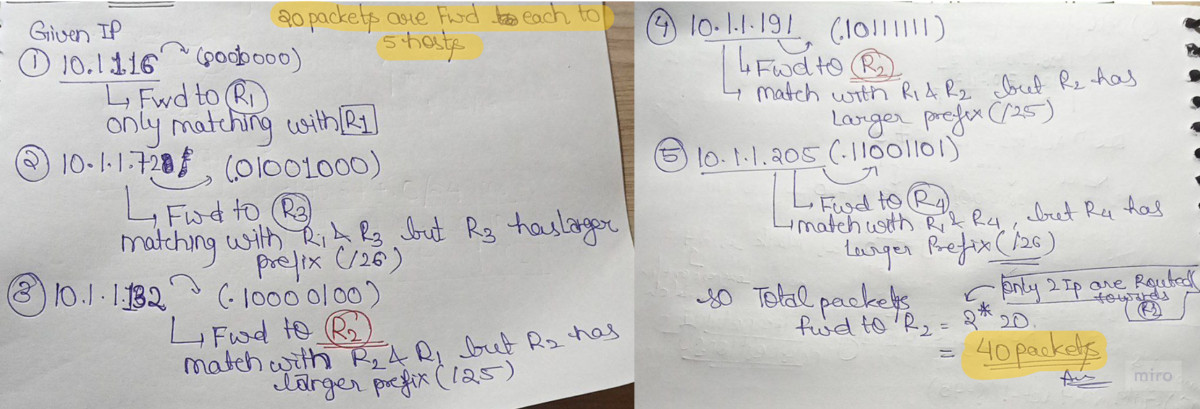 Given IP
20 packets are Fwd to each to
5 hosts
① 10.1.1.16 (00010000)
↳ Fwd to R1
only matching with R1
② 10.1.1.72 (.01001000)
↳ Fwd to R3
matching with R1 & R3 but R3 has larger
prefix (/26)
③ 10.1.1.132 (.10000100)
↳ Fwd to R2
match with R2 & R1 but R2 has
larger prefix (/25)
④ 10.1.1.191 (.10111111)
↳ Fwd to R2
↳ match with R1 & R2 but R2 has
Larger prefix (/25)
⑤ 10.1.1.205 (.11001101)
↳ Fwd to R4
↳ match with R1 & R4, but R4 has
Larger Prefix (/26)
only 2 Ip are Routed
towards
R2
so Total packets
fwd to R2 = 2*20
= 40 packets
Ans
miro